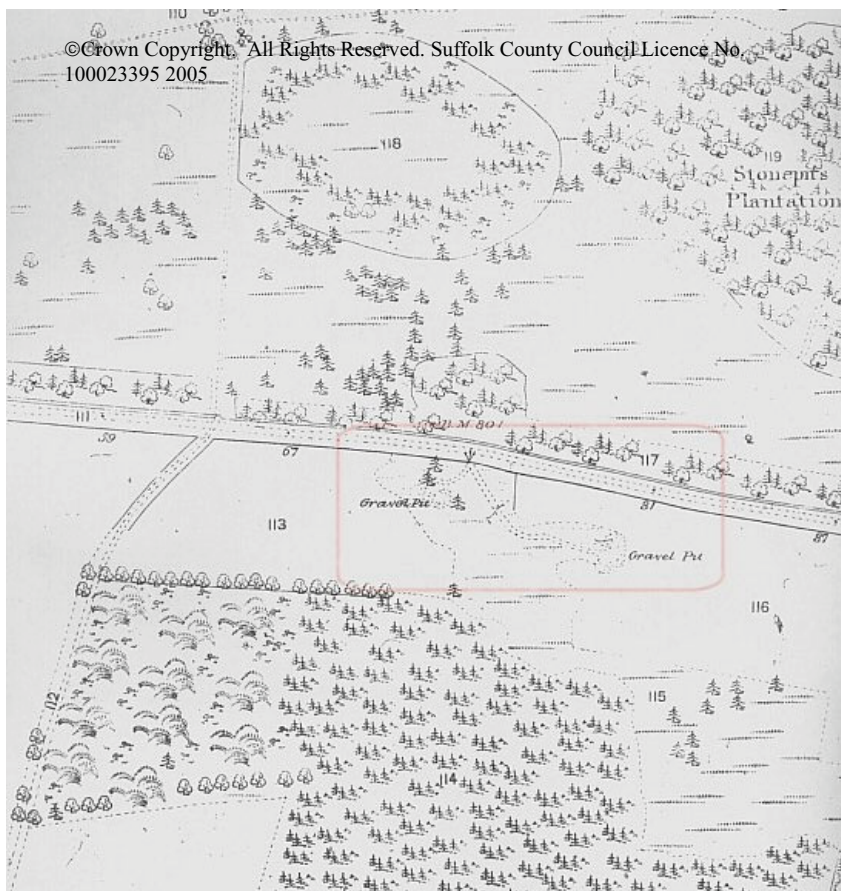 110
©Crown Copyright. All Rights Reserved. Suffolk County Council Licence No.
100023395 2005
118
119
Stonepits
Plantation
111
B.M. 80.1
59
67
117
Gravel Pit
81
113
87
Gravel Pit
116
112
115
114